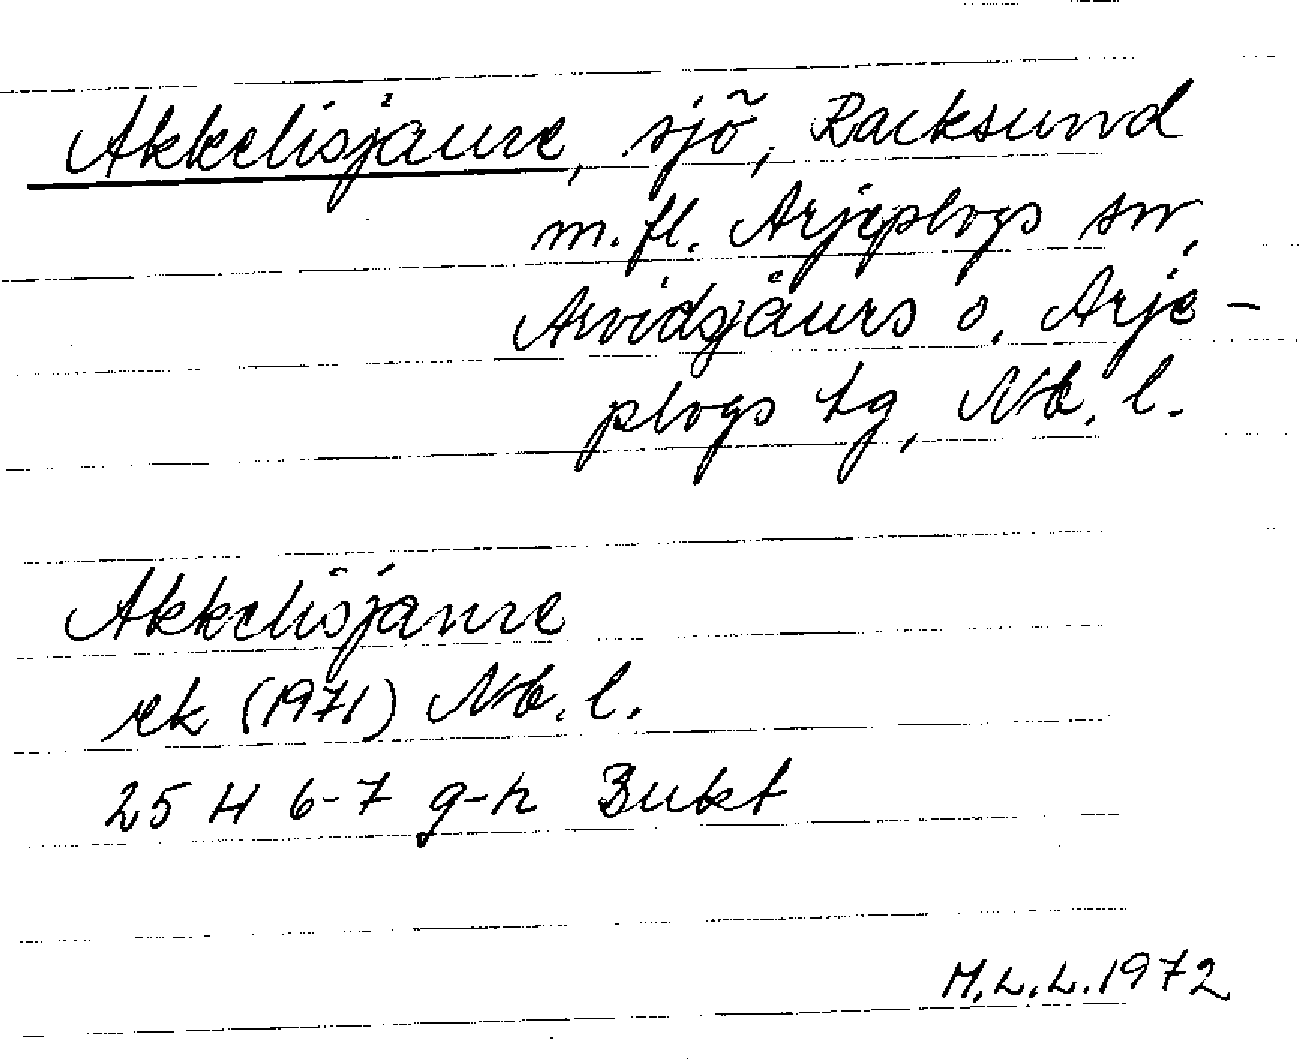 Akkelisjaure, sjö, Racksund
m.fl. Arjeplogs sn,
Arvidsjaurs o. Arje-
plogs tg, Nb. l.
Akkelisjaure
rk (1971) Nb. l.
25 H 6-7 g-h Bukt
M.L.L. 1972